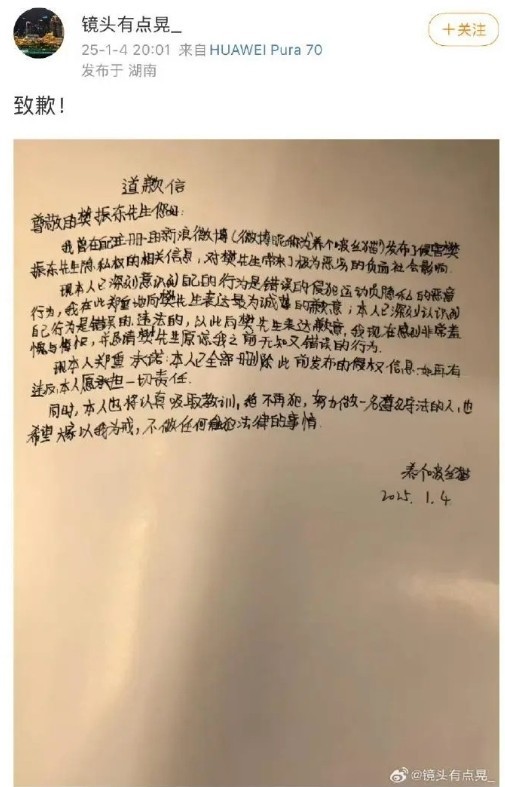 镜头有点晃_
+关注
25-1-4 20:01 来自 HUAWEI Pura 70
发布于 湖南
致歉！
道歉信
尊敬的樊振东先生您好：
我曾在 注册的新浪微博(微博昵称为养个啵丝猫)发布了侵害樊
振东先生隐私权的相关信息，对樊先生带来了极为恶劣的负面社会影响.
现本人已深刻意识到自己的行为是错误的侵犯运动员隐私的恶意
行为，我在此郑重地向樊先生表达最为诚挚的歉意；本人已深刻认识到
自己行为是错误的、违法的，以此向樊先生表达歉意，我现在感到非常羞
愧与悔恨，并恳请樊先生原谅我之前无知又错误的行为.
现本人郑重承诺：本人已全部删除此前发布的侵权信息.如再有
违反本人愿承担一切责任.
同时，本人也将认真吸取教训，绝不再犯，努力做一名遵纪守法的人，也
希望大家以我为戒，不做任何触犯法律的事情.
养个啵丝猫
2025. 1. 4
@镜头有点晃_